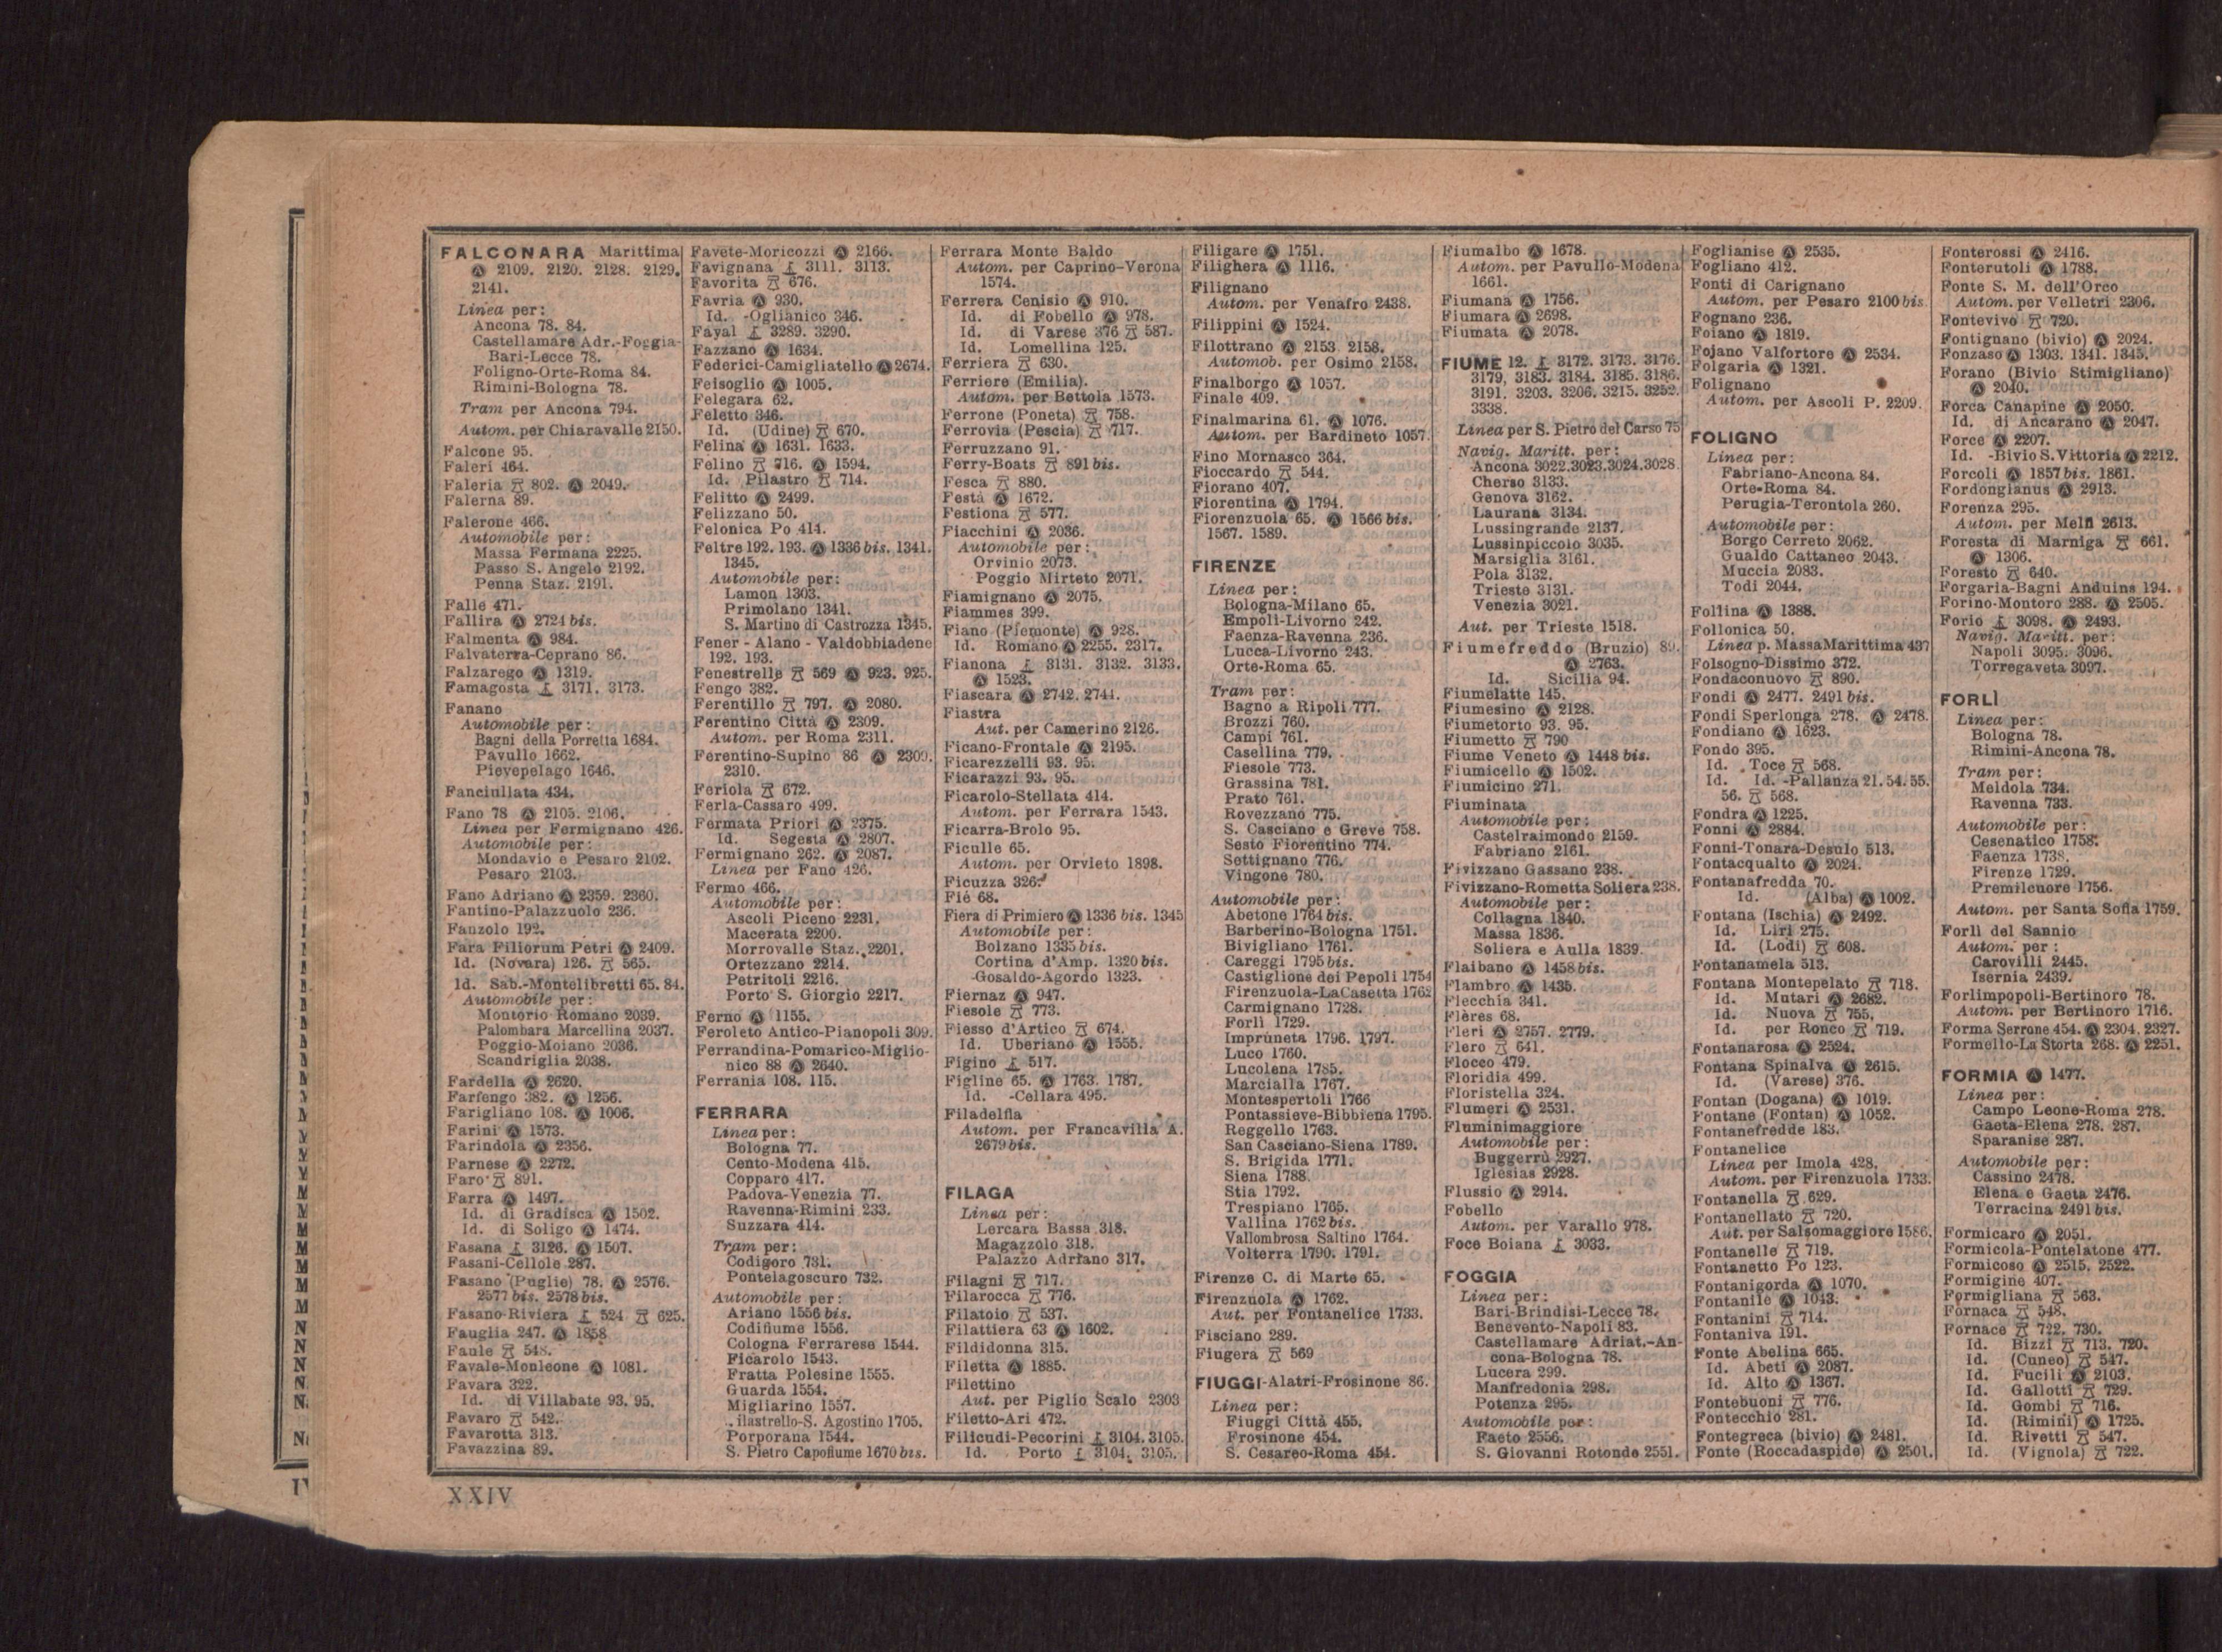 FALCONARA Marittima
Ⓐ 2109. 2120. 2128. 2129.
2141.
Linea per:
Ancona 78. 84.
Castellamare Adr.-Foggia-
Bari-Lecce 78.
Foligno-Orte-Roma 84.
Rimini-Bologna 78.
Tram per Ancona 794.
Autom. per Chiaravalle 2150.
Falcone 95.
Faleri 464.
Faleria 802. Ⓐ 2049.
Falerna 89.
Falerone 466.
Automobile per:
Massa Fermana 2225.
Passo S. Angelo 2192.
Penna Staz. 2191.
Falle 471.
Fallira Ⓐ 2724 bis.
Falmenta Ⓐ 984.
Falvaterra-Ceprano 86.
Falzarego Ⓐ 1319.
Famagosta 3171. 3173.
Fanano
Automobile per:
Bagni della Porretta 1684.
Pavullo 1662.
Pievepelago 1646.
Fanciullata 434.
Fano 78 Ⓐ 2105. 2106.
Linea per Fermignano 426.
Automobile per:
Mondavio e Pesaro 2102.
Pesaro 2103.
Fano Adriano Ⓐ 2359. 2360.
Fantino-Palazzuolo 236.
Fanzolo 192.
Fara Filiorum Petri Ⓐ 2409.
Id. (Novara) 126. 565.
Id. Sab.-Montelibretti 65. 84.
Automobile per:
Montorio Romano 2039.
Palombara Marcellina 2037.
Poggio-Moiano 2036.
Scandriglia 2038.
Fardella Ⓐ 2620.
Farfengo 382. Ⓐ 1256.
Farigliano 108. Ⓐ 1006.
Farini Ⓐ 1573.
Farindola Ⓐ 2356.
Farnese Ⓐ 2272.
Faro 891.
Farra Ⓐ 1497.
Id. di Gradisca Ⓐ 1502.
Id. di Soligo Ⓐ 1474.
Fasana 3126. Ⓐ 1507.
Fasani-Cellole 287.
Fasano (Puglie) 78. Ⓐ 2576.
2577 bis. 2578 bis.
Fasano-Riviera 524 625.
Fauglia 247. Ⓐ 1858
Faule 548.
Favale-Monleone Ⓐ 1081.
Favara 322.
Id. di Villabate 93. 95.
Favaro 542.
Favarotta 313.
Favazzina 89.
Favete-Moricozzi Ⓐ 2166.
Favignana 3111. 3113.
Favorita 676.
Favria Ⓐ 930.
Id. -Oglianico 346.
Fayal 3289. 3290.
Fazzano Ⓐ 1634.
Federici-Camigliatello Ⓐ 2674.
Feisoglio Ⓐ 1005.
Felegara 62.
Feletto 346.
Id. (Udine) 670.
Felina Ⓐ 1631. 1633.
Felino 716. Ⓐ 1594.
Id. Pilastro 714.
Felitto Ⓐ 2499.
Felizzano 50.
Felonica Po 414.
Feltre 192. 193. Ⓐ 1336 bis. 1341.
1345.
Automobile per:
Lamon 1303.
Primolano 1341.
S. Martino di Castrozza 1345.
Fener - Alano - Valdobbiadene
192. 193.
Fenestrelle 569 Ⓐ 923. 925.
Fengo 382.
Ferentillo 797. Ⓐ 2080.
Ferentino Città Ⓐ 2309.
Autom. per Roma 2311.
Ferentino-Supino 86 Ⓐ 2309.
2310.
Feriola 672.
Ferla-Cassaro 499.
Fermata Priori Ⓐ 2375.
Id. Segesta Ⓐ 2807.
Fermignano 262. Ⓐ 2087.
Linea per Fano 426.
Fermo 466.
Automobile per:
Ascoli Piceno 2231.
Macerata 2200.
Morrovalle Staz. 2201.
Ortezzano 2214.
Petritoli 2216.
Porto S. Giorgio 2217.
Ferno Ⓐ 1155.
Feroleto Antico-Pianopoli 309.
Ferrandina-Pomarico-Miglio-
nico 88 Ⓐ 2640.
Ferrania 108. 115.
FERRARA
Linea per:
Bologna 77.
Cento-Modena 415.
Copparo 417.
Padova-Venezia 77.
Ravenna-Rimini 233.
Suzzara 414.
Tram per:
Codigoro 731.
Pontelagoscuro 732.
Automobile per:
Ariano 1556 bis.
Codifiume 1556.
Cologna Ferrarese 1544.
Ficarolo 1543.
Fratta Polesine 1555.
Guarda 1554.
Migliarino 1557.
ilastrello-S. Agostino 1705.
Porporana 1544.
S. Pietro Capofiume 1670 bis.
Ferrara Monte Baldo
Autom. per Caprino-Verona
1574.
Ferrera Cenisio Ⓐ 910.
Id. di Fobello Ⓐ 978.
Id. di Varese 376 587.
Id. Lomellina 125.
Ferriera 630.
Ferriere (Emilia).
Autom. per Bettola 1573.
Ferrone (Poneta) 758.
Ferrovia (Pescia) 717.
Ferruzzano 91.
Ferry-Boats 891 bis.
Fesca 880.
Festà Ⓐ 1672.
Festiona 577.
Fiacchini Ⓐ 2036.
Automobile per:
Orvinio 2073.
Poggio Mirteto 2071.
Fiamignano Ⓐ 2075.
Fiammes 399.
Fiano (Piemonte) Ⓐ 928.
Id. Romano Ⓐ 2255. 2317.
Fianona 3131. 3132. 3133.
Ⓐ 1523.
Fiascara Ⓐ 2742. 2744.
Fiastra
Aut. per Camerino 2126.
Ficano-Frontale Ⓐ 2195.
Ficarezzelli 93. 95.
Ficarazzi 93. 95.
Ficarolo-Stellata 414.
Autom. per Ferrara 1543.
Ficarra-Brolo 95.
Ficulle 65.
Autom. per Orvieto 1898.
Ficuzza 326.
Fiè 68.
Fiera di Primiero Ⓐ 1336 bis. 1345
Automobile per:
Bolzano 1335 bis.
Cortina d'Amp. 1320 bis.
-Gosaldo-Agordo 1323.
Fiernaz Ⓐ 947.
Fiesole 773.
Fiesso d'Artico 674.
Id. Uberiano Ⓐ 1555.
Figino 517.
Figline 65. Ⓐ 1763. 1787.
Id. -Cellara 495.
Filadelfia
Autom. per Francavilla A.
2679 bis.
FILAGA
Linea per:
Lercara Bassa 318.
Magazzolo 318.
Palazzo Adriano 317.
Filagni 717.
Filarocca 776.
Filatoio 537.
Filattiera 63 Ⓐ 1602.
Fildidonna 315.
Filetta Ⓐ 1885.
Filettino
Aut. per Piglio Scalo 2303
Filetto-Ari 472.
Filicudi-Pecorini 3104. 3105.
Id. Porto 3104. 3105.
Filigare Ⓐ 1751.
Filighera Ⓐ 1116.
Filignano
Autom. per Venafro 2438.
Filippini Ⓐ 1524.
Filottrano Ⓐ 2153. 2158.
Automob. per Osimo 2158.
Finalborgo Ⓐ 1057.
Finale 409.
Finalmarina 61. Ⓐ 1076.
Autom. per Bardineto 1057.
Fino Mornasco 364.
Fioccardo 544.
Fiorano 407.
Fiorentina Ⓐ 1794.
Fiorenzuola 65. Ⓐ 1566 bis.
1567. 1589.
FIRENZE
Linea per:
Bologna-Milano 65.
Empoli-Livorno 242.
Faenza-Ravenna 236.
Lucca-Livorno 243.
Orte-Roma 65.
Tram per:
Bagno a Ripoli 777.
Brozzi 760.
Campi 761.
Casellina 779.
Fiesole 773.
Grassina 781.
Prato 761.
Rovezzano 775.
S. Casciano e Greve 758.
Sesto Fiorentino 774.
Settignano 776.
Vingone 780.
Automobile per:
Abetone 1764 bis.
Barberino-Bologna 1751.
Bivigliano 1761.
Careggi 1795 bis.
Castiglione dei Pepoli 1754
Firenzuola-LaCasetta 1762
Carmignano 1728.
Forlì 1729.
Impruneta 1796. 1797.
Luco 1760.
Lucolena 1785.
Marcialla 1767.
Montespertoli 1766
Pontassieve-Bibbiena 1795.
Reggello 1763.
San Casciano-Siena 1789.
S. Brigida 1771.
Siena 1788.
Stia 1792.
Trespiano 1765.
Vallina 1762 bis.
Vallombrosa Saltino 1764.
Volterra 1790. 1791.
Firenze C. di Marte 65.
Firenzuola Ⓐ 1762.
Aut. per Fontanelice 1733.
Fisciano 289.
Fiugera 569
FIUGGI-Alatri-Frosinone 86.
Linea per:
Fiuggi Città 455.
Frosinone 454.
S. Cesareo-Roma 454.
Fiumalbo Ⓐ 1678.
Autom. per Pavullo-Modena
1661.
Fiumana Ⓐ 1756.
Fiumara Ⓐ 2698.
Fiumata Ⓐ 2078.
FIUME 12. 3172. 3173. 3176.
3179. 3183. 3184. 3185. 3186.
3191. 3203. 3206. 3215. 3252.
3338.
Linea per S. Pietro del Carso 75
Navig. Maritt. per:
Ancona 3022. 3023. 3024. 3028.
Cherso 3133.
Genova 3162.
Laurana 3134.
Lussingrande 2137.
Lussinpiccolo 3035.
Marsiglia 3161.
Pola 3132.
Trieste 3131.
Venezia 3021.
Aut. per Trieste 1518.
Fiumefreddo (Bruzio) 89.
Ⓐ 2763.
Id. Sicilia 94.
Fiumelatte 145.
Fiumesino Ⓐ 2128.
Fiumetorto 93. 95.
Fiumetto 790
Fiume Veneto Ⓐ 1448 bis.
Fiumicello Ⓐ 1502.
Fiumicino 271.
Fiuminata
Automobile per:
Castelraimondo 2159.
Fabriano 2161.
Fivizzano Gassano 238.
Fivizzano-Rometta Soliera 238.
Automobile per:
Collagna 1840.
Massa 1836.
Soliera e Aulla 1839.
Flaibano Ⓐ 1458 bis.
Flambro Ⓐ 1435.
Flecchia 341.
Flères 68.
Fleri Ⓐ 2757. 2779.
Flero 641.
Flocco 479.
Floridia 499.
Floristella 324.
Flumeri Ⓐ 2531.
Fluminimaggiore
Automobile per:
Buggerrù 2927.
Iglesias 2928.
Flussio Ⓐ 2914.
Fobello
Autom. per Varallo 978.
Foce Boiana 3033.
FOGGIA
Linea per:
Bari-Brindisi-Lecce 78.
Benevento-Napoli 83.
Castellamare Adriat.-An-
cona-Bologna 78.
Lucera 299.
Manfredonia 298.
Potenza 295.
Automobile per:
Faeto 2556.
S. Giovanni Rotondo 2551.
Foglianise Ⓐ 2535.
Fogliano 412.
Fonti di Carignano
Autom. per Pesaro 2100 bis.
Fognano 236.
Foiano Ⓐ 1819.
Fojano Valfortore Ⓐ 2534.
Folgaria Ⓐ 1321.
Folignano
Autom. per Ascoli P. 2209.
FOLIGNO
Linea per:
Fabriano-Ancona 84.
Orte-Roma 84.
Perugia-Terontola 260.
Automobile per:
Borgo Cerreto 2062.
Gualdo Cattaneo 2043.
Muccia 2083.
Todi 2044.
Follina Ⓐ 1388.
Follonica 50.
Linea p. MassaMarittima 437
Folsogno-Dissimo 372.
Fondaconuovo 890.
Fondi Ⓐ 2477. 2491 bis.
Fondi Sperlonga 278. Ⓐ 2478.
Fondiano Ⓐ 1623.
Fondo 395.
Id. Toce 568.
Id. Id. -Pallanza 21. 54. 55.
56. 568.
Fondra Ⓐ 1225.
Fonni Ⓐ 2884.
Fonni-Tonara-Desulo 513.
Fontacqualto Ⓐ 2024.
Fontanafredda 70.
Id. (Alba) Ⓐ 1002.
Fontana (Ischia) Ⓐ 2492.
Id. Liri 275.
Id. (Lodi) 608.
Fontanamela 513.
Fontana Montepelato 718.
Id. Mutari Ⓐ 2682.
Id. Nuova 755.
Id. per Ronco 719.
Fontanarosa Ⓐ 2524.
Fontana Spinalva Ⓐ 2615.
Id. (Varese) 376.
Fontan (Dogana) Ⓐ 1019.
Fontane (Fontan) Ⓐ 1052.
Fontanefredde 183.
Fontanelice
Linea per Imola 428.
Autom. per Firenzuola 1733.
Fontanella 629.
Fontanellato 720.
Aut. per Salsomaggiore 1586.
Fontanelle 719.
Fontanetto Po 123.
Fontanigorda Ⓐ 1070.
Fontanile Ⓐ 1043.
Fontanini 714.
Fontaniva 191.
Fonte Abelina 665.
Id. Abeti Ⓐ 2087.
Id. Alto Ⓐ 1367.
Fontebuoni 776.
Fontecchio 281.
Fontegreca (bivio) Ⓐ 2481.
Fonte (Roccadaspide) Ⓐ 2501.
Fonterossi Ⓐ 2416.
Fonterutoli Ⓐ 1788.
Fonte S. M. dell'Orco
Autom. per Velletri 2306.
Fontevivo 720.
Fontignano (bivio) Ⓐ 2024.
Fonzaso Ⓐ 1303. 1341. 1345.
Forano (Bivio Stimigliano)
Ⓐ 2040.
Forca Canapine Ⓐ 2050.
Id. di Ancarano Ⓐ 2047.
Force Ⓐ 2207.
Id. -Bivio S. Vittoria Ⓐ 2212.
Forcoli Ⓐ 1857 bis. 1861.
Fordongianus Ⓐ 2913.
Forenza 295.
Autom. per Melfi 2613.
Foresta di Marniga 661.
Ⓐ 1306.
Foresto 640.
Forgaria-Bagni Anduins 194.
Forino-Montoro 288. Ⓐ 2505.
Forio 3098. Ⓐ 2493.
Navig. Maritt. per:
Napoli 3095. 3096.
Torregaveta 3097.
FORLÌ
Linea per:
Bologna 78.
Rimini-Ancona 78.
Tram per:
Meldola 734.
Ravenna 733.
Automobile per:
Cesenatico 1758.
Faenza 1738.
Firenze 1729.
Premilcuore 1756.
Autom. per Santa Sofia 1759.
Forlì del Sannio
Autom. per:
Carovilli 2445.
Isernia 2439.
Forlimpopoli-Bertinoro 78.
Autom. per Bertinoro 1716.
Forma Serrone 454. Ⓐ 2304. 2327.
Formello-La Storta 268. Ⓐ 2251.
FORMIA Ⓐ 1477.
Linea per:
Campo Leone-Roma 278.
Gaeta-Elena 278. 287.
Sparanise 287.
Automobile per:
Cassino 2478.
Elena e Gaeta 2476.
Terracina 2491 bis.
Formicaro Ⓐ 2051.
Formicola-Pontelatone 477.
Formicoso Ⓐ 2515. 2522.
Formigine 407.
Formigliana 563.
Fornaca 548.
Fornace 722. 730.
Id. Bizzi 713. 720.
Id. (Cuneo) 547.
Id. Fucili Ⓐ 2103.
Id. Gallotti 729.
Id. Gombi 716.
Id. (Rimini) Ⓐ 1725.
Id. Rivetti 547.
Id. (Vignola) 722.
XXIV